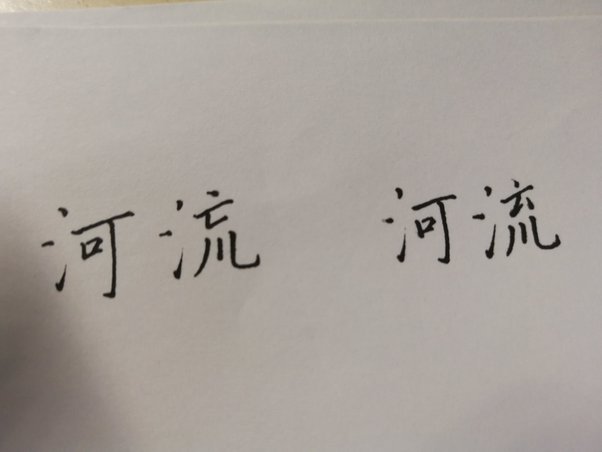 河流 河流